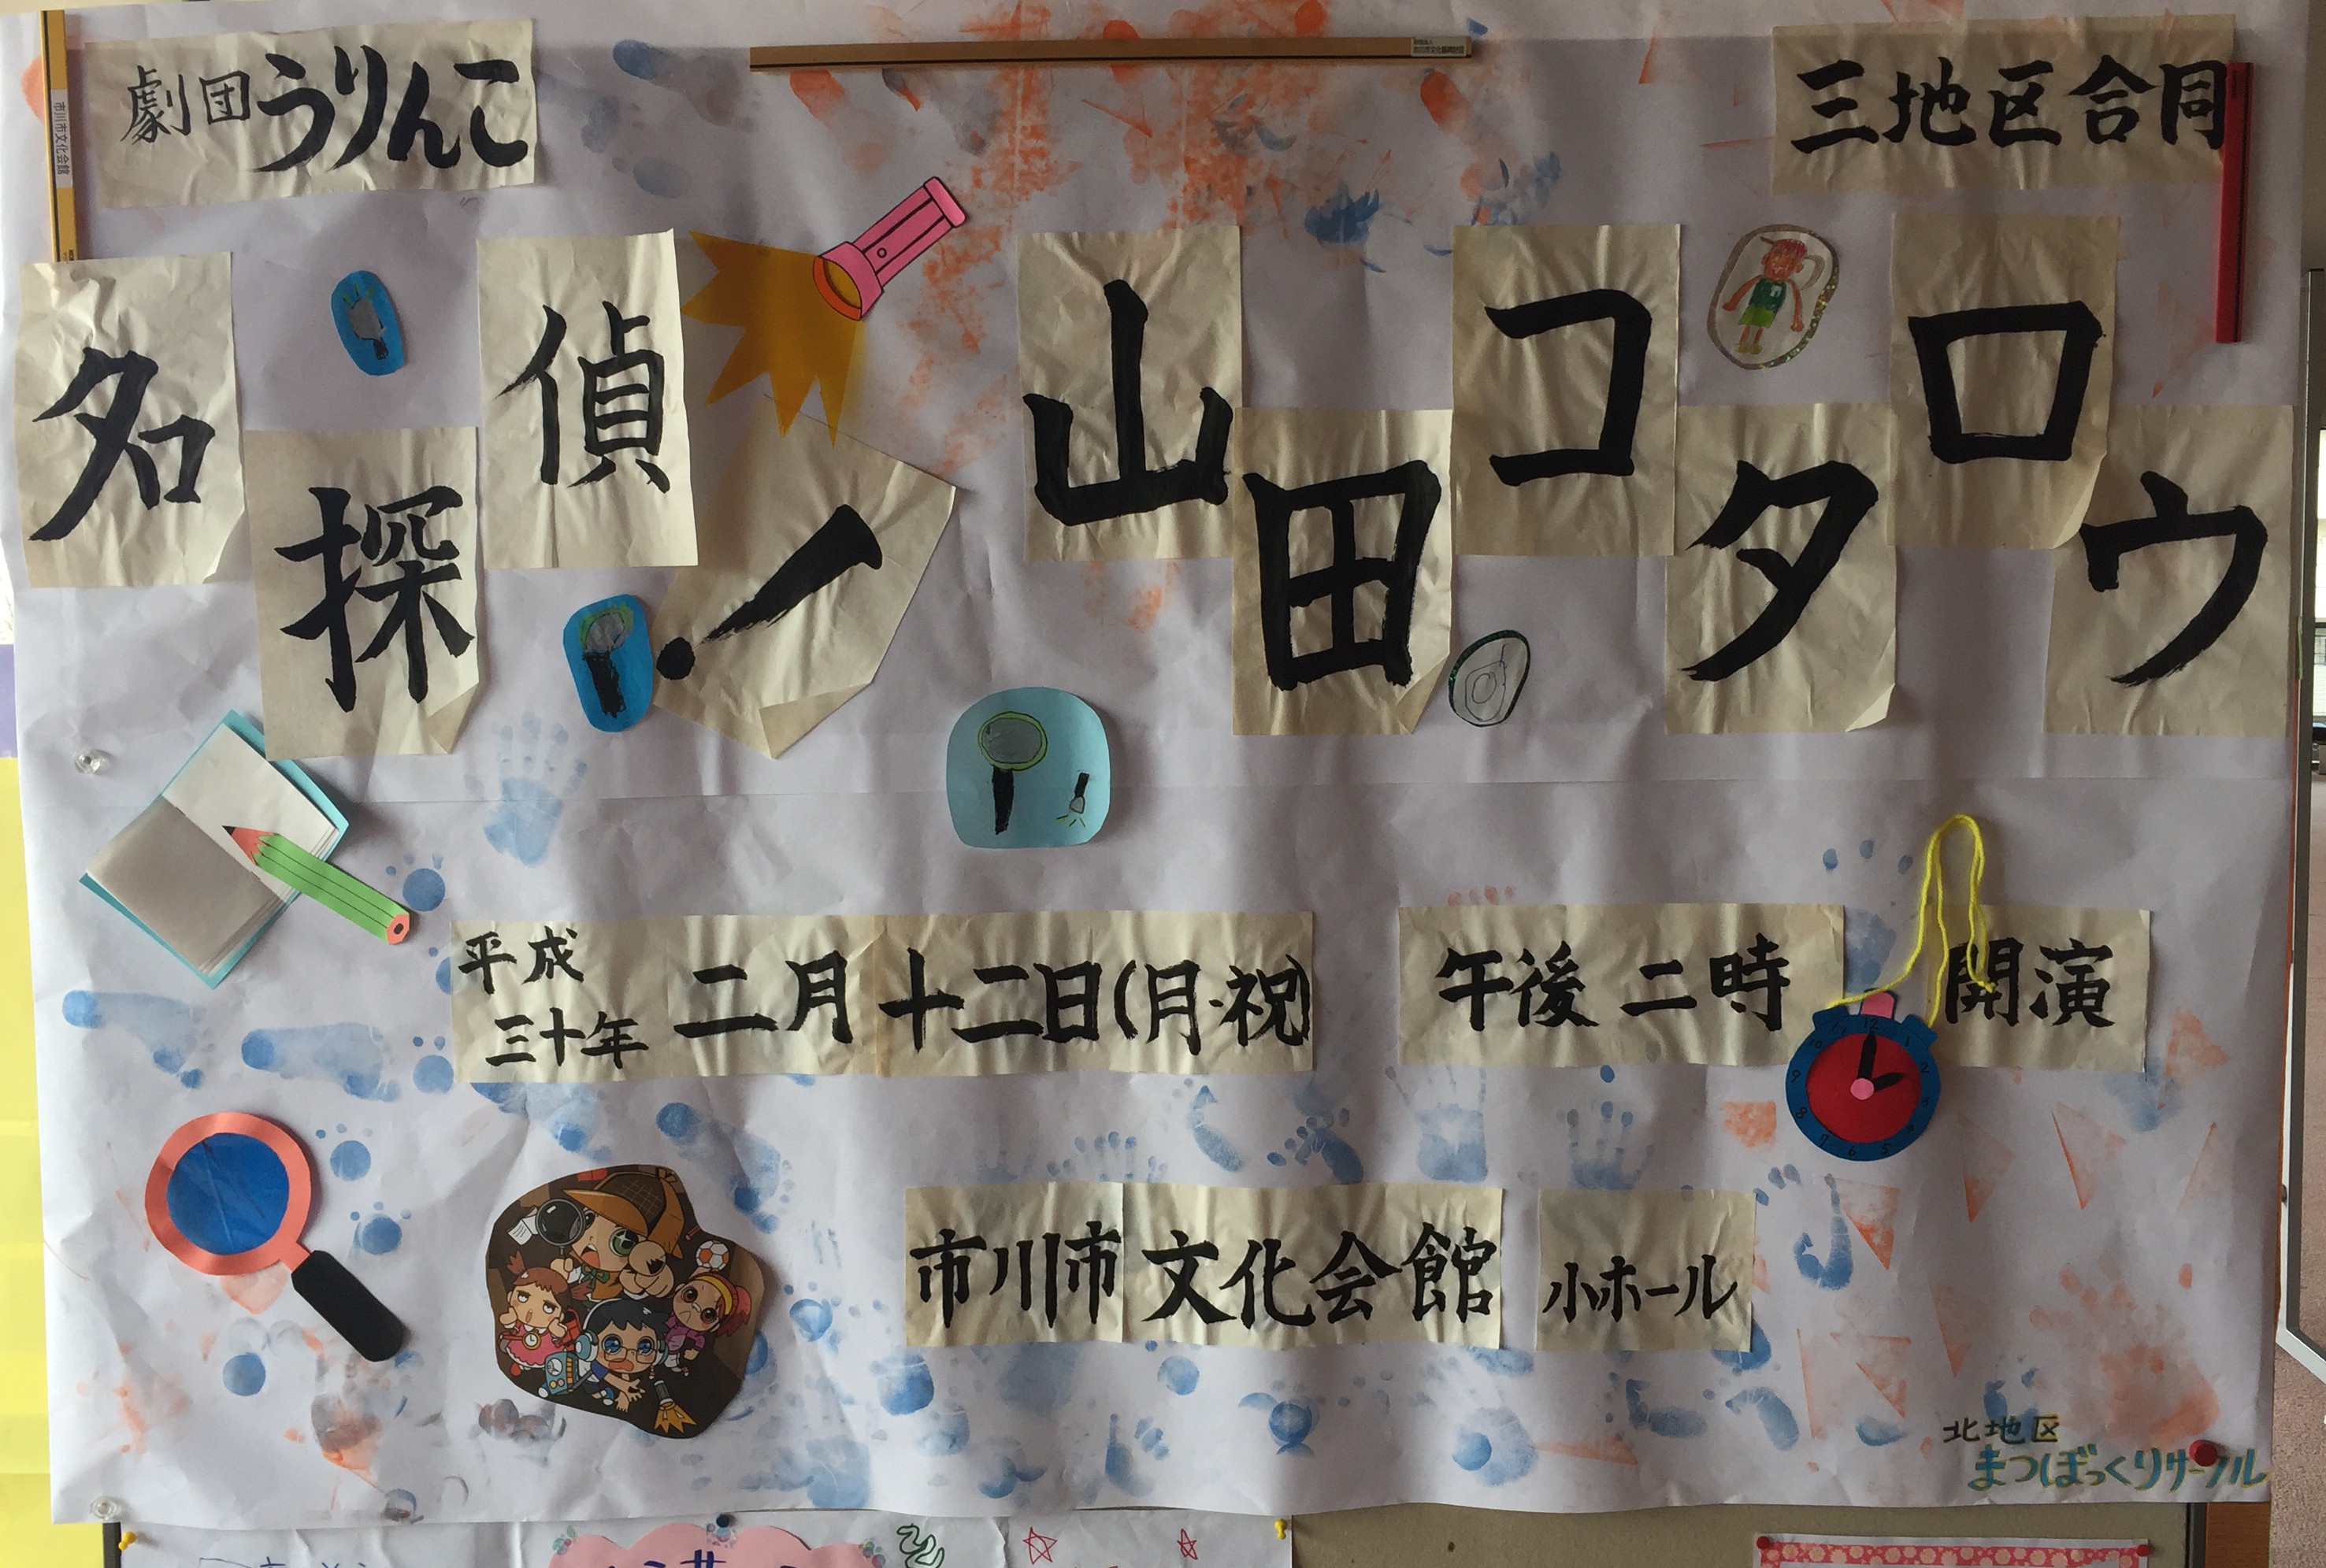 劇団うりんこ
三地区合同
市川市文化会館
名探偵!山田コタロウ
平成三十年二月十二日(月・祝)
午後二時 開演
市川市文化会館 小ホール
北地区
まつぼっくりサークル